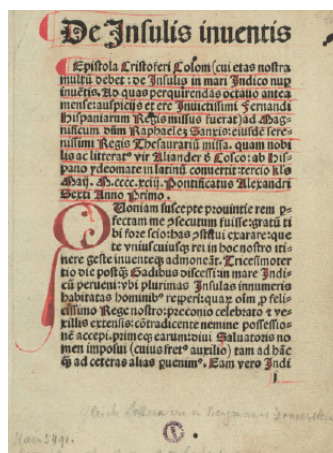 De Insulis inuentis
Epistola Cristoferi Colom (cui etas nostra
multū debet: de Insulis in mari Indico nup
inuētis. Ad quas perquirendas octauo antea
mense: auspicijs et ere Inuictissimi Fernandi
Hispaniarum Regis missus fuerat) ad Mag-
nificum dūm Raphaelez Sanxis: eiusdē sere-
nissimi Regis Thesaurariū missa. quam nobi
lis ac litterat⁹ vir Aliander d̄ Cosco: ab His-
pano ydeomate in latinū conuertit: tercio kl̄s
Maij. M.cccc.xciij. Pontificatus Alexandri
Sexti Anno Primo.
QUoniam suscepte prouintie rem p̲-
fectam me p̲secutum fuisse: gratū ti
bi fore scio: has p̲stitui exarare: que
te vniuscuiusq̲ rei in hoc nostro iti
nere geste inuenteq̲ admoneāt. Tricesimoter
tio die postq̄̄ Gadibus discessi: in mare Indi-
cū perueni: vbi plurimas Insulas innumeris
habitatas hominib⁹ reperi: quaꝝ oīm p̲ feli-
cissimo Rege nostro: preconio celebrato ⁊ ve-
xillis extensis: cōtradicente nemine possessio-
nē accepi. primeq̲ earum: diui Saluatoris no
men imposui (cuius fret⁹ auxilio) tam ad hāc
q̄̄ ad ceteras alias puenim⁹. Eam vero Indi
i